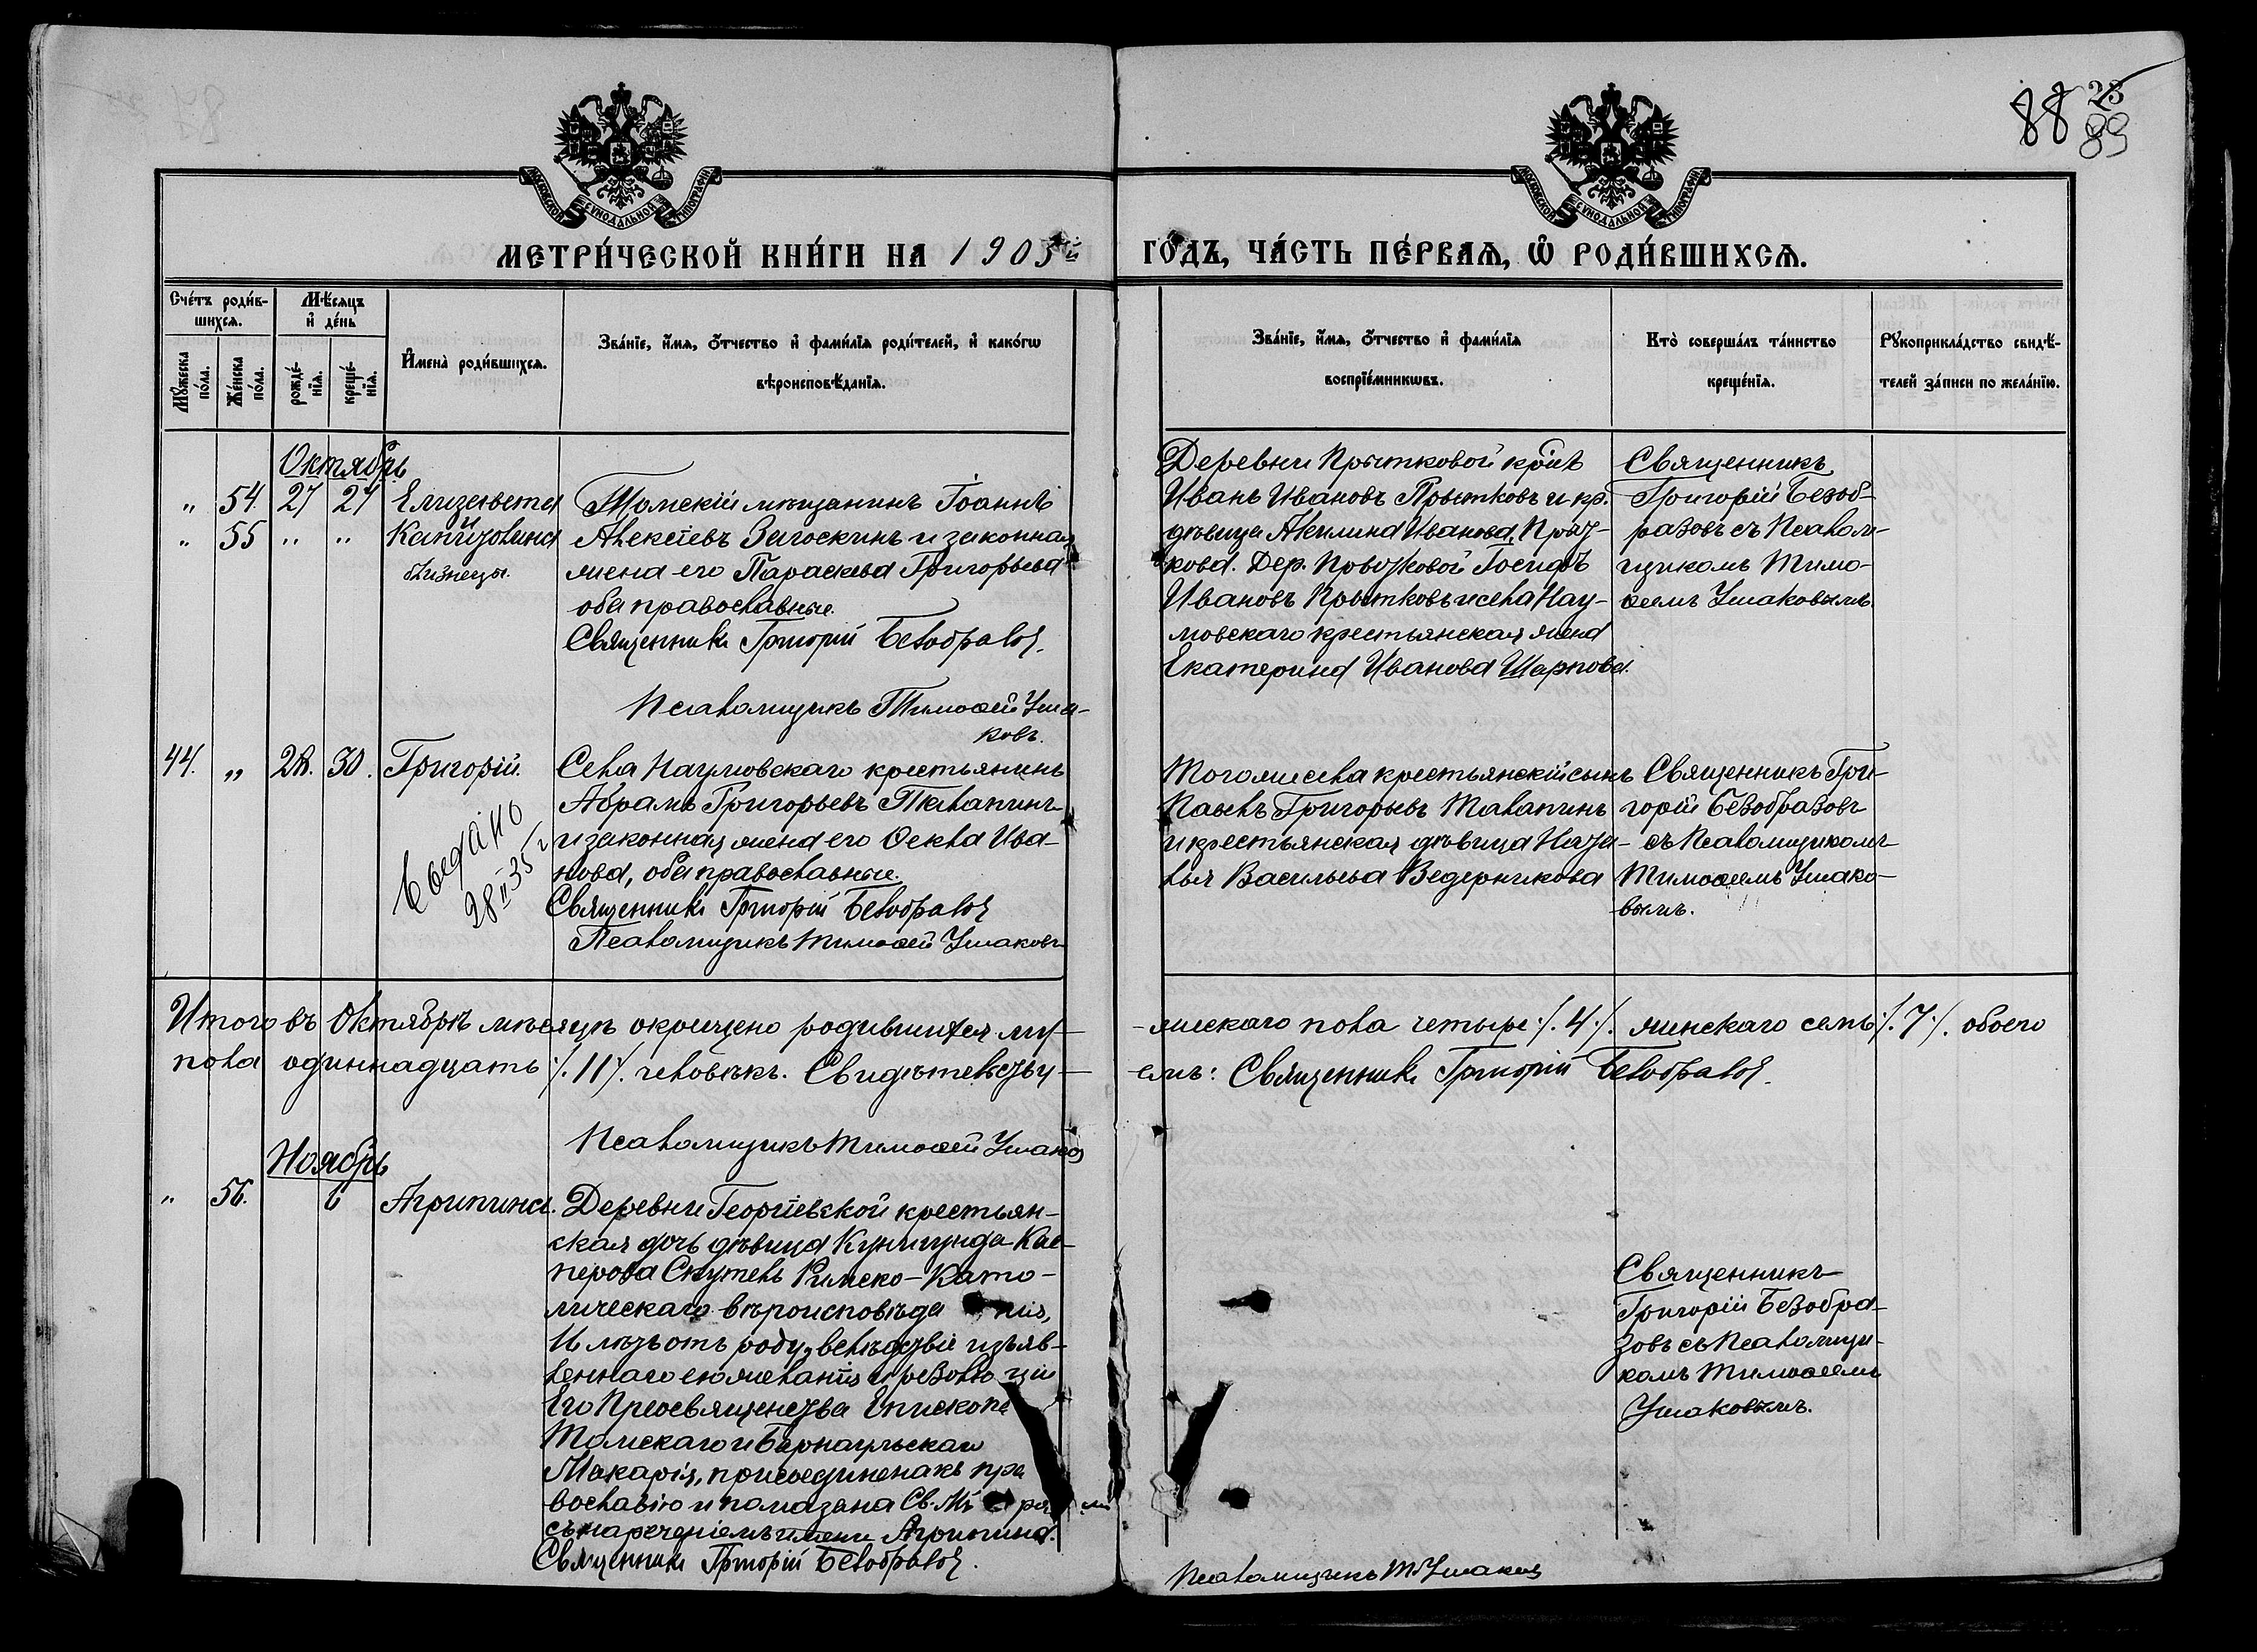 88 23
89
МОСКОВСКОЙ СѴНОДАЛЬНОЙ ТИПОГРАФІИ
МОСКОВСКОЙ СѴНОДАЛЬНОЙ ТИПОГРАФІИ
МЕТРИ́ЧЕСКОЙ КНИ́ГИ НА 1905й
ГО́ДЪ, ЧА́СТЬ ПЕ́РВАѦ, Ѽ РОДИ́ВШИХСѦ.
Сче́тъ роди́в-
шихсѧ.
Мѣ́сѧцъ
и҆ де́нь
Мꙋ́жеска по́ла.
Же́нска по́ла.
рожде́-
нїѧ.
креще́-
нїѧ.
И҆мена̀ роди́вшихсѧ.
Зва́нїе, и҆́мѧ, ѻ҆́тчество и҆ фами́лїѧ роди́телей, и҆ како́гѡ
вѣроисповѣ́данїѧ.
Зва́нїе, и҆́мѧ, ѻ҆́тчество и҆ фами́лїѧ
воспрїе́мникѡвъ.
Кто̀ соверша́лъ та́инство
креще́нїѧ.
Рꙋкоприкла́дство свидѣ́-
телей за́писи по жела́нїю.
Октябрь
„ 54. 27 27 Елизавета
„ 55 „ „ Капитолина
близнецы.
Томскій мѣщанинъ Іоаннъ
Алексѣевъ Загоскинъ и законная
жена его Параскева Григорьева
оба православные.
Священникъ Григорій Безобразовъ.
Псаломщикъ Тимоѳей Уша-
ковъ.
Деревни Прытковой
Иванъ Ивановъ Прытковъ и кр.
дѣвица Акилина Иванова Прыт-
кова. Дер. Прытковой Іосифъ
Ивановъ Прытковъ и села Нау-
мовскаго крестьянская жена
Екатерина Иванова Шарпова.
Священникъ
Григорій Безоб-
разовъ съ Псалом-
щикомъ Тимо-
ѳеемъ Ушаковымъ.
44. „ 28. 30. Григорій.
Создано
28 II 35 г
Села Наумовскаго крестьянинъ
Абрамъ Григорьевъ Талапинъ
и законная жена его Ѳекла Ива-
нова, оба православные.
Священникъ Григорій Безобразовъ
Псаломщикъ Тимоѳей Ушаковъ
Того же села крестьянскій сынъ
Павелъ Григорьевъ Талапинъ
и крестьянская дѣвица Ната-
лья Васильева Ведерникова
Священникъ Гри-
горій Безобразовъ
съ Псаломщикомъ
Тимоѳеемъ Ушако-
вымъ.
Итого въ Октябрѣ мѣсяцѣ окрещено родившихся му-
жескаго пола четыре ./. 4 ./. женскаго семь ./. 7 ./. обоего
пола одиннадцать ./. 11 ./. человѣкъ. Свидѣтельству-
емъ: Священникъ Григорій Безобразовъ.
Псаломщикъ Тимоѳей Ушаковъ
Ноябрь
„ 56. 6 Агрипина.
Деревни Георгіевской крестьян-
ская дочь дѣвица Кунигунда Кас-
перова Скутель Римско-Като-
лическаго вѣроисповѣданія,
отъ роду, вслѣдствіе изъяв-
леннаго ею желанія и резолюціи
Его Преосвященства Епископа
Томскаго и Барнаульскаго
Макарія, присоединена къ пра
вославію и помазана Св.
съ нареченіемъ имени Агрипина.
Священникъ Григорій Безобразовъ.
Священникъ
Григорій Безобра-
зовъ съ Псаломщи-
комъ Тимоѳеемъ
Ушаковымъ.
Псаломщикъ Т Ушаковъ